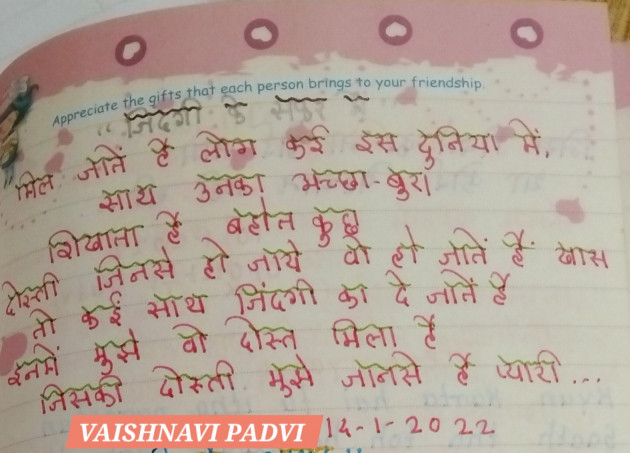 Appreciate the gifts that each person brings to your friendship.
"जिंदगी के सफर में
मिल जातें है लोग कई इस दुनिया में,
साथ उनका अच्छा-बुरा
शिखाता है बहोत कुछ
दोस्ती जिनसे हो जाये वो हो जातें हैं खास
तो कई साथ जिंदगी का दे जातें है
इनमें मुझे वो दोस्त मिला है
जिसकी दोस्ती मुझे जानसे है प्यारी...
VAISHNAVI PADVI 14-1-2022